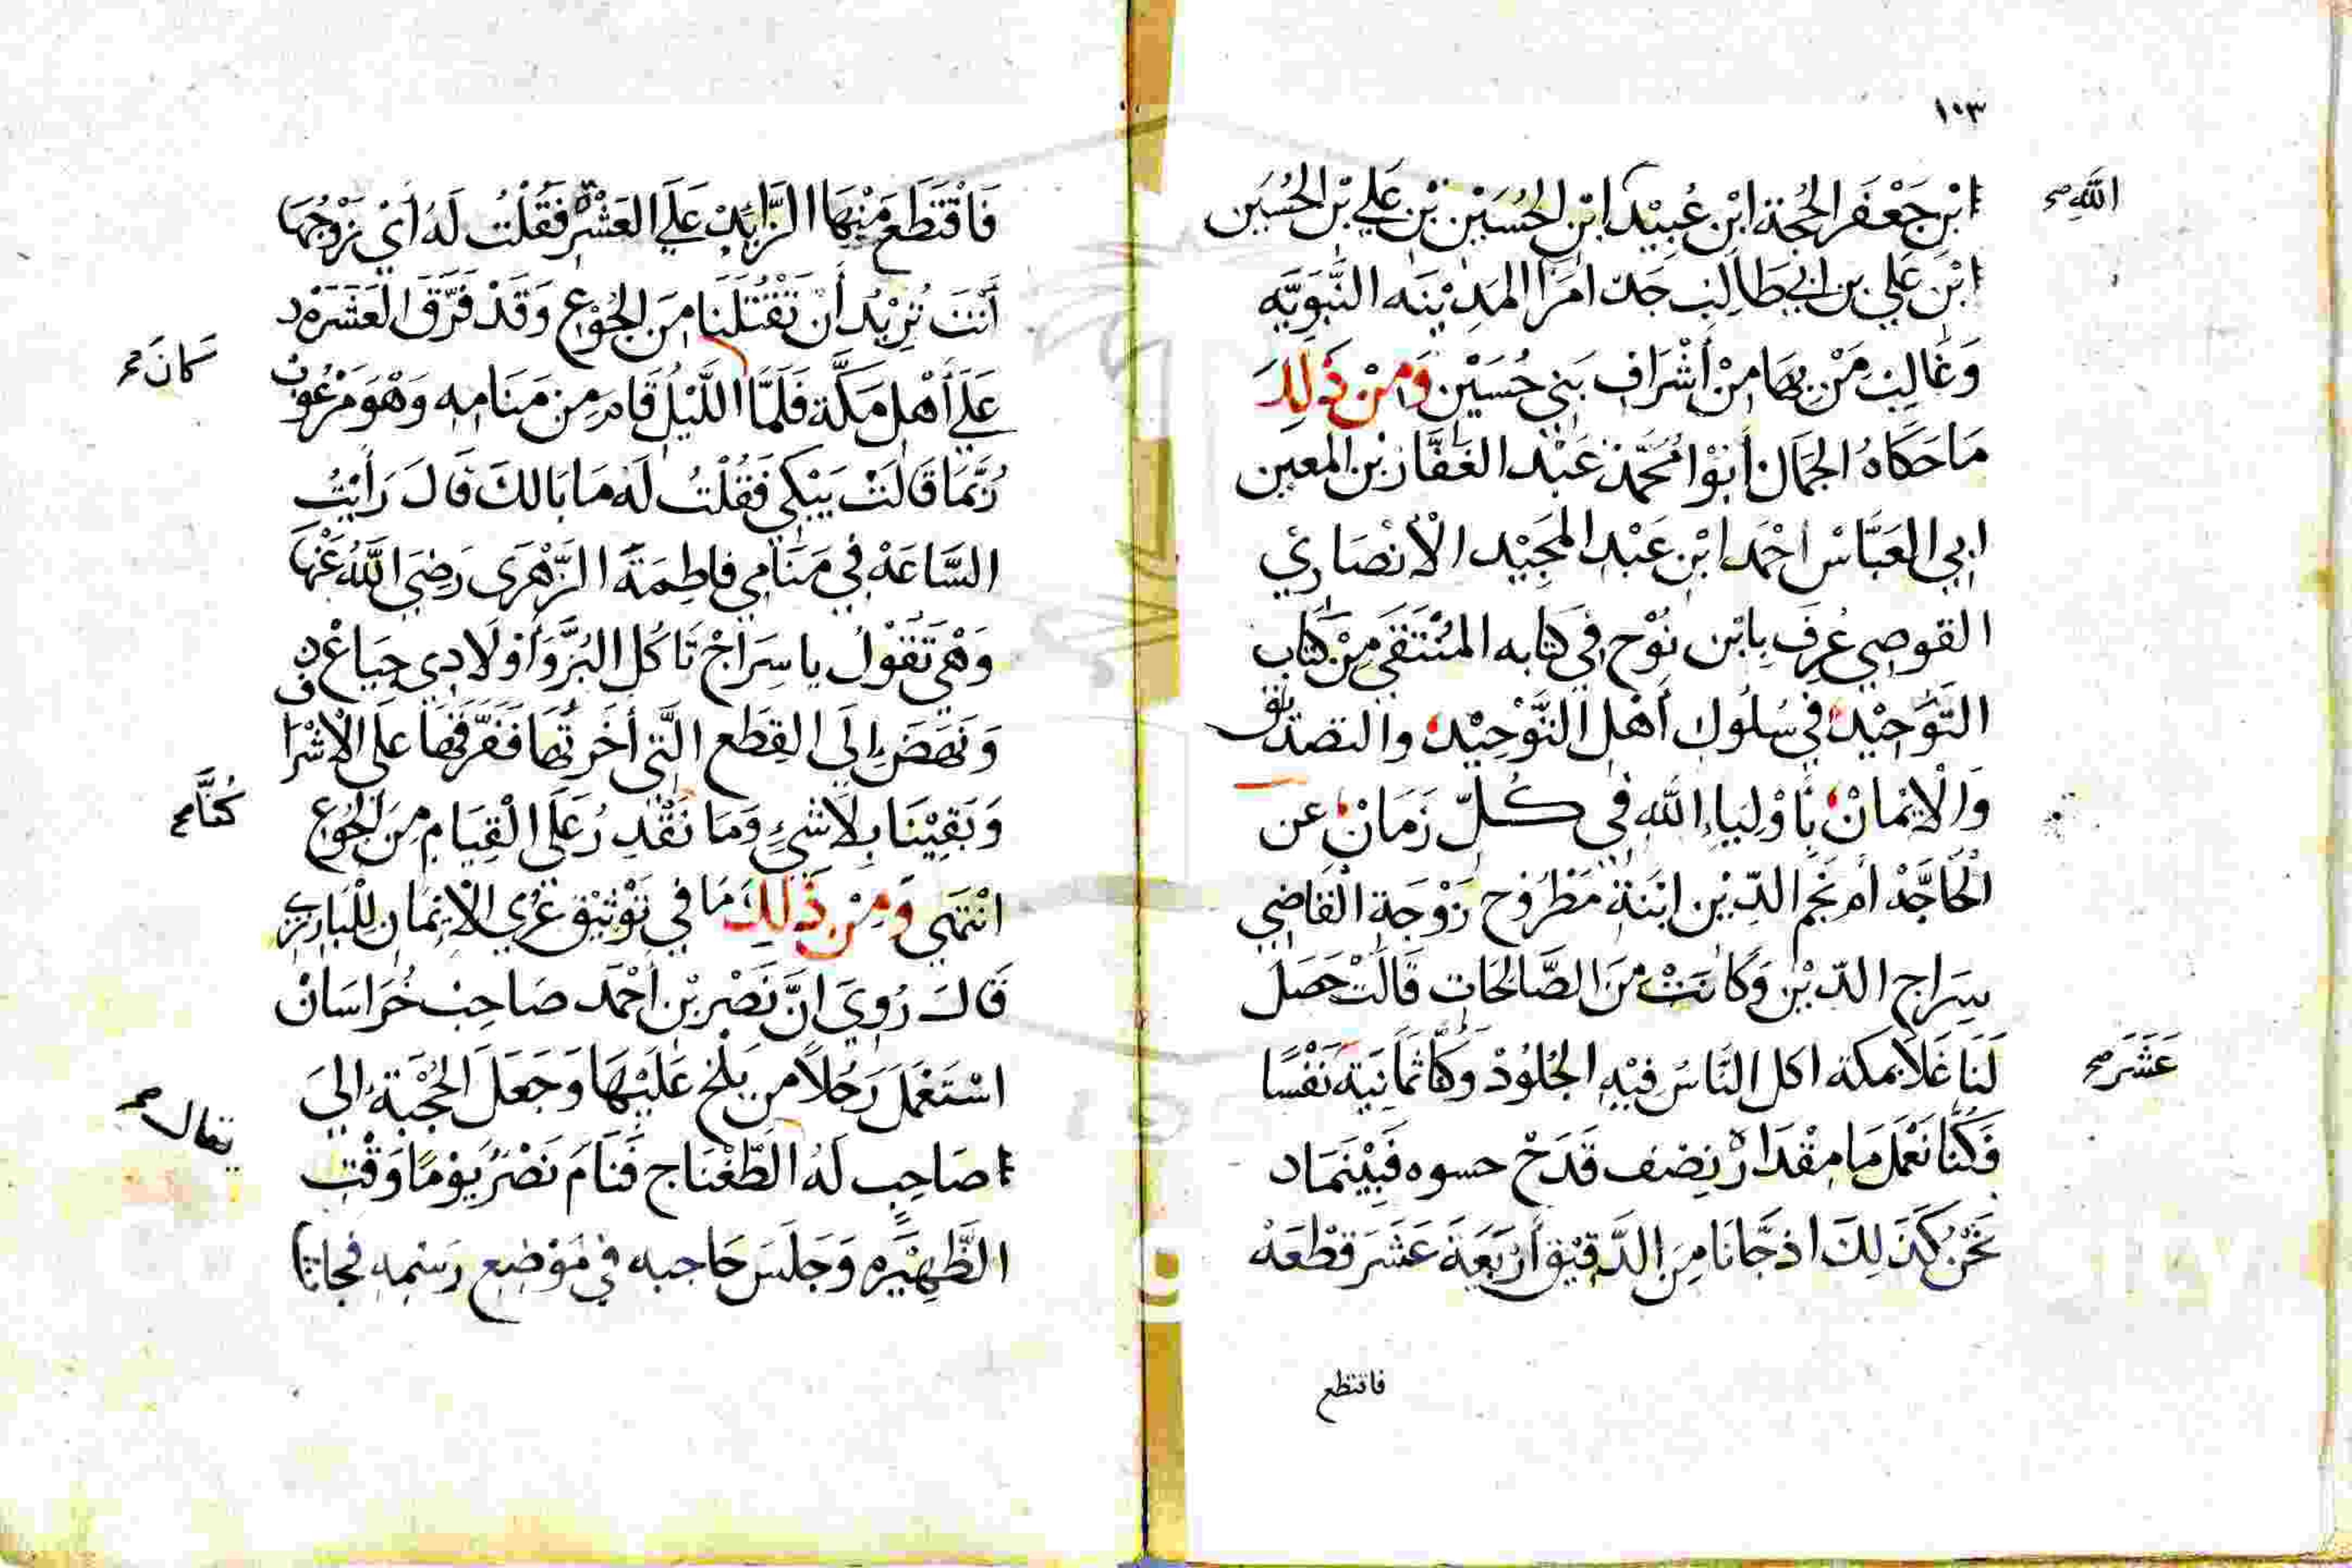 ١٠٣
ابْنِ جَعْفَر الحُجة ابْنِ عُبَيْد ابْنِ الحُسَيْن بْنِ عَلِي بْنِ الحُسَيْن
اللّٰه صح
ابْنِ عَلِي بن ابي طَالِب جَدّ امَرَا المَدِيْنَه النَّبَوِيَّه
وَغَالِب مَنْ بهَا مِنْ أَشْرَاف بَنِي حُسَيْن وَمِنْ ذَلِكَ
مَا حَكَاهُ الجَمَال أَبُوْا مُحَمَّد عَبْد الغَفَّار بْن المعين
ابي العَبَّاسْ احْمَد ابْن عَبْد المَجِيْد الْأنْصَارِي
القوصِي عُرِفَ بِابْن نُوْح فِي كتَابه المُنْتَقَى مِنْ كتَاب
التَّوْحِيْد فِي سُلُوك أَهْل التَّوْحِيْد والتصديق
وَالْايْمَانْ بِأَوْلِيَاءِ اللّٰه فِي كُلّ زَمَانْ عن
الْحَاجَّهْ أم نَجْم الدِّيْن ابْنَة مَطْرُوْح زَوْجَة الْقَاضِي
سِرَاج الدّيْن وَكَانَتْ مِنَ الصَّالحَات قَالَتْ حَصَل
لَنَا غَلَا بمَكة اكل النَّاسُ فِيْهِ الجُلُوْدْ وَكُنَّا ثَمَانِيَة نَفْسًا
عَشَرَ صح
فَكُنَّا نَعْمَل مَا مِقْدَارْ نِصْف قَدَحْ حسوه فَبَيْنَمَا
نَحْنُ كَذَلِكَ اذ جَّانَا مِنَ الدَّقِيْق أَرْبَعَةَ عَشَرَ قطْعَهْ
فاقتطع
فَاقْتَطَعَ مَنْهَا الزَّايِدْ عَلَى العَشْرة فَقُلْتُ لَهُ أيْ زَوْجُهَا
أَنْتَ تُرِيْدُ أَنْ تَقْتُلَنَا مِنَ الجُوْع وَقَدْ فَرَّقَ الْعَشَرَهْ
كَانَ صح
عَلَى أَهْل مَكَّة فَلَمَّا اللَّيْل قَام مِنْ مَنَامِه وَهْوَ مَرْعُوْب
رُبَّمَا قَالَتْ يَبْكِي فَقُلْتُ لَهُ مَا بَالكَ قَالَ رَأَيْتُ
السَّاعَهْ فِي مَنَامِي فاطِمَةَ الزَّهْرَى رَضِيَ اللّٰهُ عَنْهَا
وَهْيَ تَقُوْلُ يا سِرَاجْ تَاكُل البُرّ وَأوْلَادِي جِيَاعْ
وَنَهَضَ إِلَى القِطَع الَّتِي أخَرتْهَا فَفَرَّقَهَا عَلَى الْاشْرَاف
وَبَقِيْنَا بِلَاشيْءٍ وَمَا نَقْدِرُ عَلَى الْقِيَام مِنَ الجُوْع
كُنَّا صح
انْتَهَى وَمِنْ ذَلِكَ مَا فِي تَوْثِيْق عُرَي الْايْمَان لِلْبَارِزِي
قَالَ رُوِيَ انَّ نَصْر بْن احْمَد صَاحِبْ خُرَاسَانْ
اسْتَعْمَلَ رَجُلاً مِن بَلْخ عَلَيْهَا وَجَعَلَ الحُجْبَة إلىَ
صَاحِبٍ لَهُ الطَّغْنَاج فَنَامَ نَصْرٌ يَوْمًا وَقْت
يقال له صح
الظَّهِيْرَه وَجَلَسَ حَاجبه فِي مَوْضِع رَسْمِهِ فجاتا